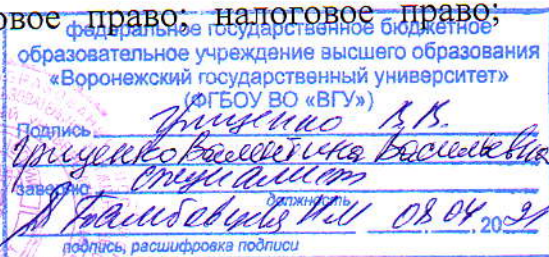 овое право; налоговое право;
федеральное государственное бюджетное
образовательное учреждение высшего образования
«Воронежский государственный университет»
(ФГБОУ ВО «ВГУ»)
Подпись Гриценко В.В.
Гриценко Валентина Васильевна
заверяю специалист
должность
Тамбовцева И.М 08 04 2021
подпись, расшифровка подписи